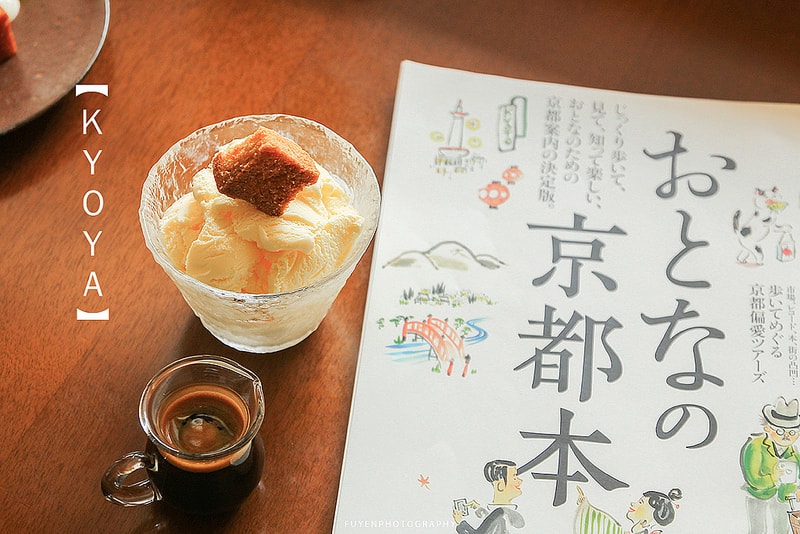 【KYOYA】
じっくり歩いて、
見て、知って楽しい、
おとなのための
京都案内の決定版。
おとなの
京都本
歩いてめぐる
京都偏愛ツアーズ
FUYENPHOTOGRAPHY